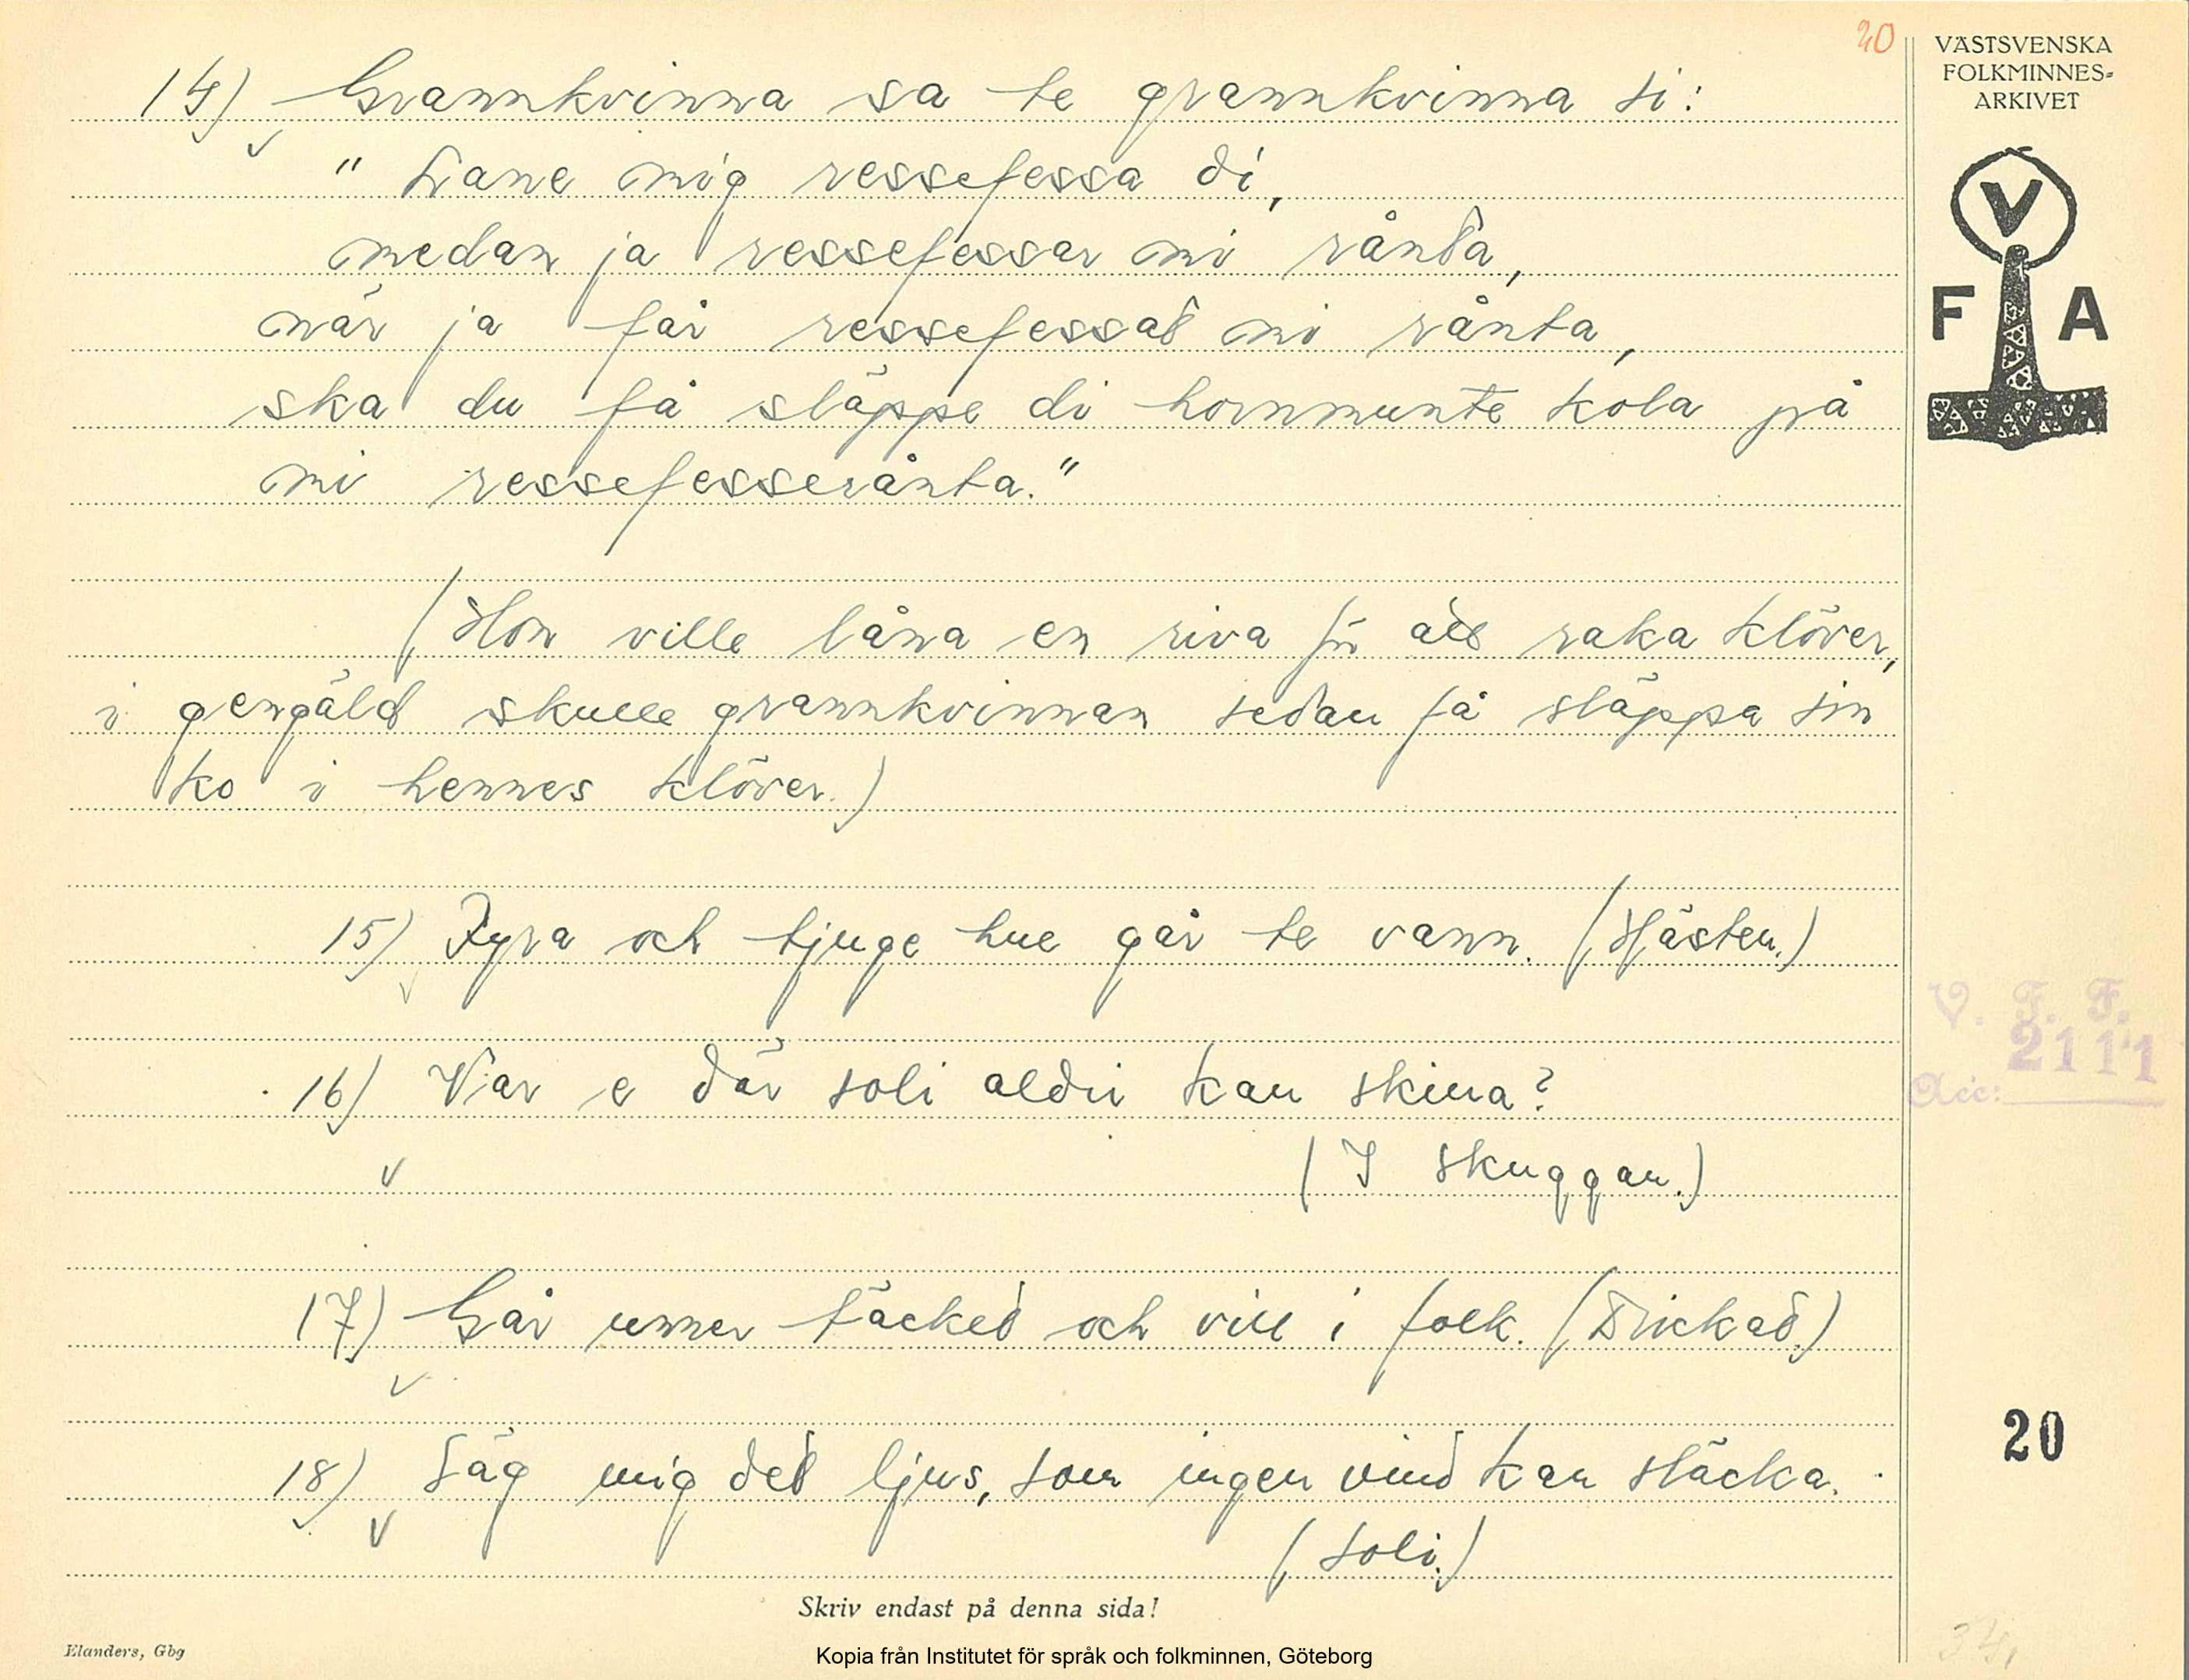 20
VÄSTSVENSKA
FOLKMINNES-
ARKIVET
V
F A
14) Grannkvinna sa te grannkvinna si:
" Lane mig ressefessa di,
medan ja ressefessar mi rånta,
när ja får ressefessat mi rånta,
ska du få släppe di hornmunte kola på
mi ressefesserånta."
(Hon ville låna en riva för att raka klöver,
i gengäld skulle grannkvinnan sedan få släppa sin
ko i hennes klöver.)
15) Fyra och tjuge hue går te vann. (Hästen.)
16) Var e där soli aldri kan skina?
(I skuggan.)
17) Går unner täcket och vill i folk. (Drickad.)
18) Säg mig det ljus, som ingen vind kan släcka.
(Soli.)
V. F. F.
2111
Acc:
20
Skriv endast på denna sida!
Elanders, Gbg
Kopia från Institutet för språk och folkminnen, Göteborg